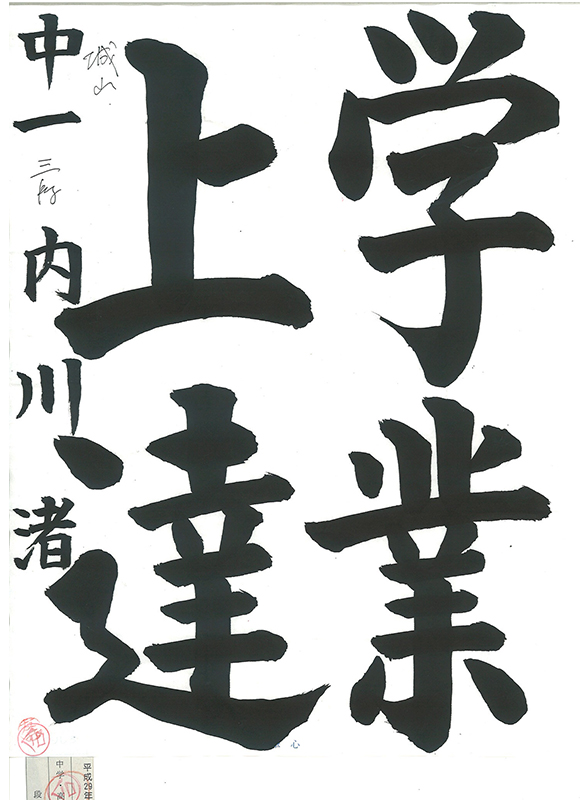 学業
上達
城山
中一
三段
内川渚
心
平成29年
中学・高
段